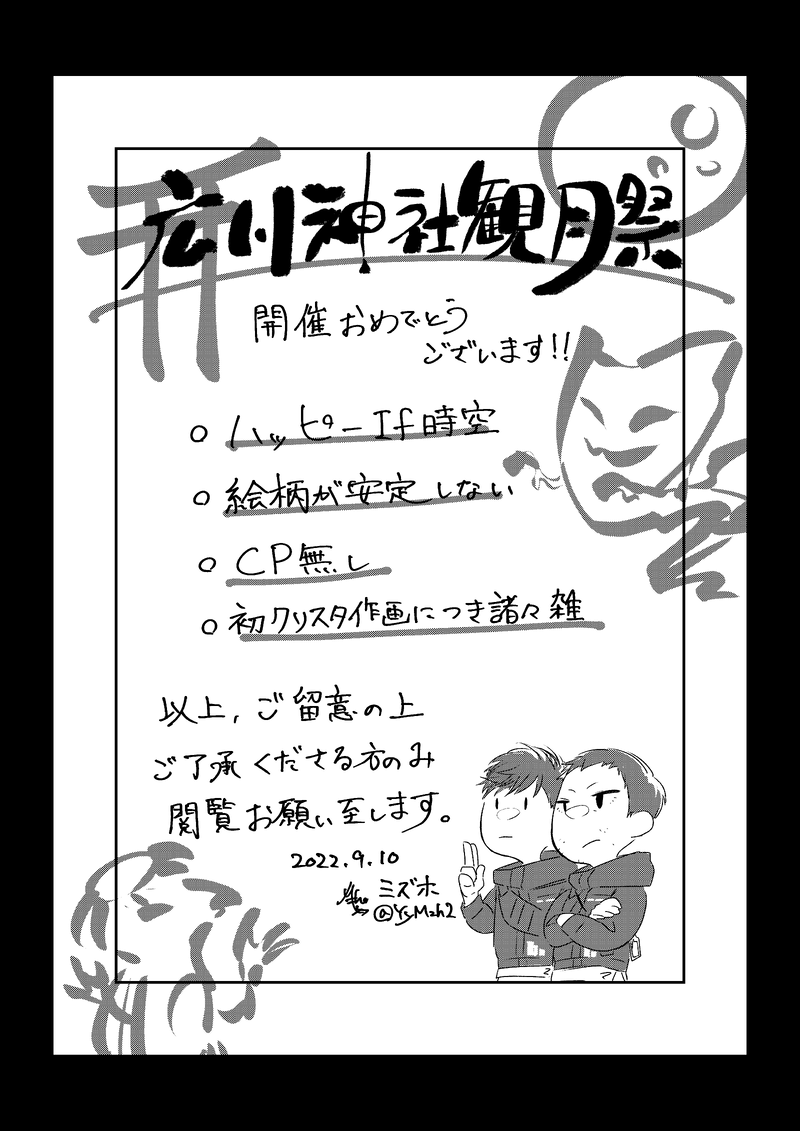 広川神社観月祭
開催おめでとう
ございます!!
○ ハッピーIf時空
○ 絵柄が安定しない
○ CP無し
○ 初クリスタ作画につき諸々雑
以上,ご留意の上
ご了承くださる方のみ
閲覧お願い至します。
2022.9.10
ミズホ
@YsMzh2